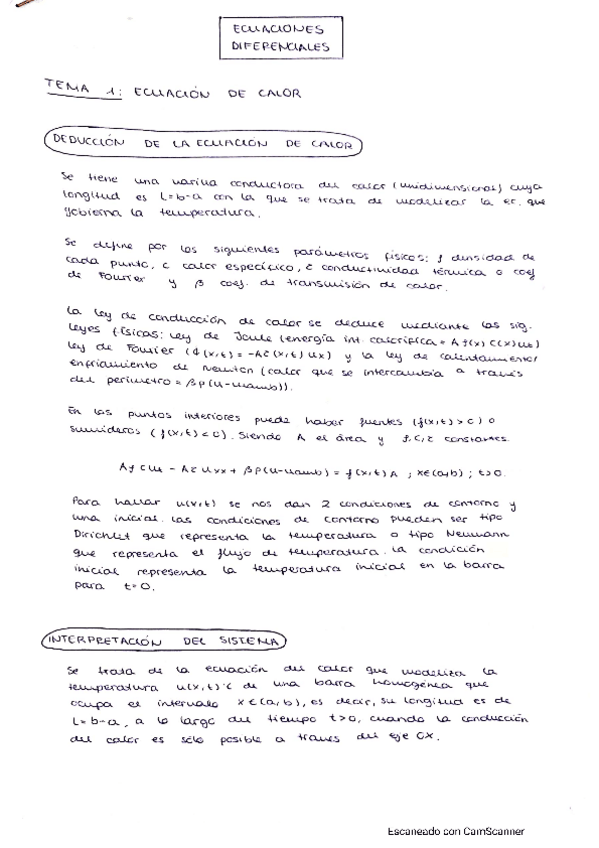 ECUACIONES
DIFERENCIALES
TEMA 1: ECUACIÓN DE CALOR
DEDUCCIÓN DE LA ECUACIÓN DE CALOR
Se tiene una varilla conductora del calor (unidimensional) cuya
longitud es L=b-a con la que se trata de modelizar la ec. que
gobierna la temperatura.
Se define por los siguientes parámetros físicos: ρ densidad de
cada punto, c calor específico, c̃ conductividad térmica o coef
de Fourier y β coef. de transmisión de calor.
La ley de conducción de calor se deduce mediante las sig.
leyes físicas: ley de Joule (energía int. calorífica = Aρ(x)c(x)u)
ley de Fourier (ϕ(x,t) = -Ac̃(x,t)ux) y la ley de calentamiento/
enfriamiento de Newton (calor que se intercambia a través
del perímetro = βp(u-uamb)).
En los puntos interiores puede haber fuentes (f(x,t)>0) o
sumideros (f(x,t)<0). Siendo A el área y ρ,c,c̃ constantes.
Aρcut - Ac̃uxx + βp(u-uamb) = f(x,t)A ; x∈(a,b) ; t>0.
Para hallar u(x,t) se nos dan 2 condiciones de contorno y
una inicial. Las condiciones de contorno pueden ser tipo
Dirichlet que representa la temperatura o tipo Neumann
que representa el flujo de temperatura. La condición
inicial representa la temperatura inicial en la barra
para t=0.
INTERPRETACIÓN DEL SISTEMA
Se trata de la ecuación del calor que modeliza la
temperatura u(x,t) de una barra homogénea que
ocupa el intervalo x∈(a,b), es decir, su longitud es de
L=b-a, a lo largo del tiempo t>0, cuando la conducción
del calor es sólo posible a traves del eje OX.
Escaneado con CamScanner